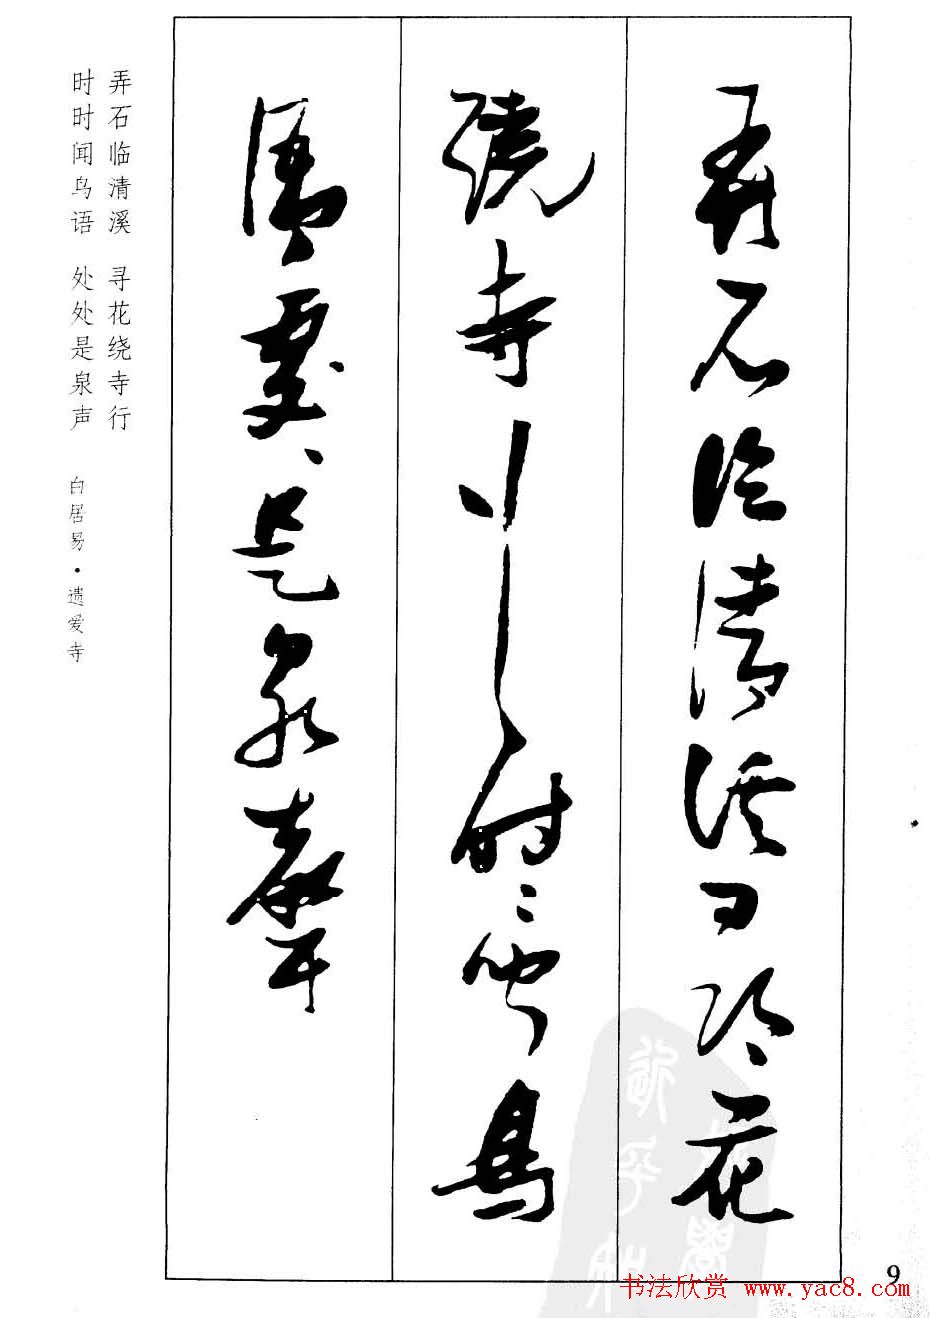 弄石临清溪寻花
绕寺行时时闻鸟
语处处是泉声
弄石临清溪 寻花绕寺行
时时闻鸟语 处处是泉声
白居易·遗爱寺
9
书法欣赏 www.yac8.com